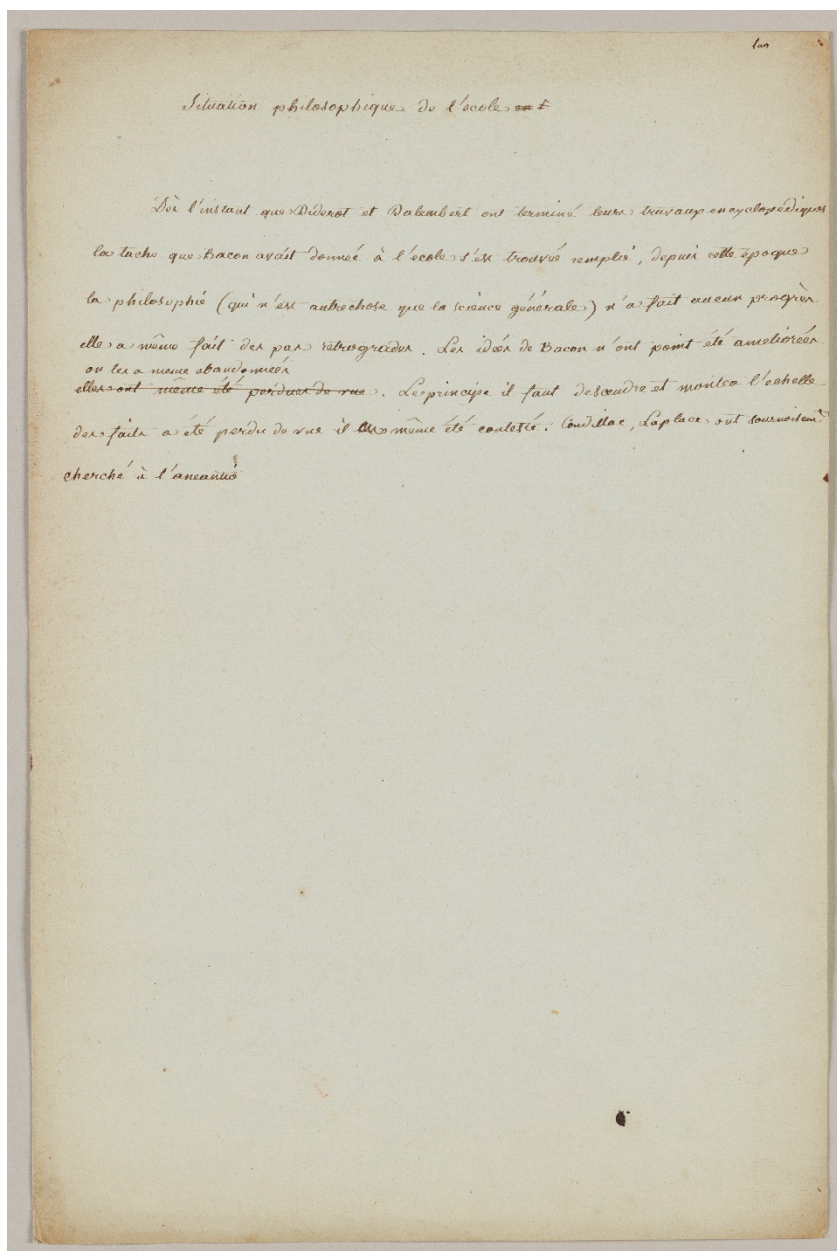 Situation philosophique de l'école
Dès l'instant que Diderot et Dalembert ont terminé leurs travaux encyclopédiques
la tache que Bacon avait donnée à l'ecole s'est trouvée remplie, depuis cette époque
la philosophie (qui n'est autre chose que la science générale) n'a fait aucun progrès
elle a même fait des pas retrogrades. Les idées de Bacon n'ont point été ameliorées
on les a meme abandonnées
elles ont même été perdues de vue. Le principe il faut descendre et monter l'echelle
des faits a été perdu de vue il a même été contesté. Condillac, Laplace ont sournoisemt
cherché à l'aneantir